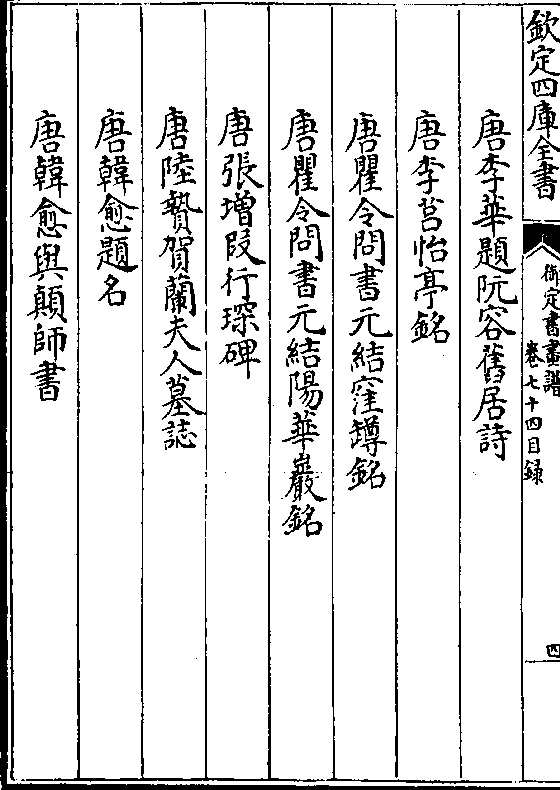 欽定四庫全書
御定書畫譜
卷七十四目録
四
唐李華題阮容舊居詩
唐李莒怡亭銘
唐瞿令問書元結窪罇銘
唐瞿令問書元結陽華巖銘
唐張增叚行琛碑
唐陸贄賀蘭夫人墓誌
唐韓愈題名
唐韓愈與顛師書